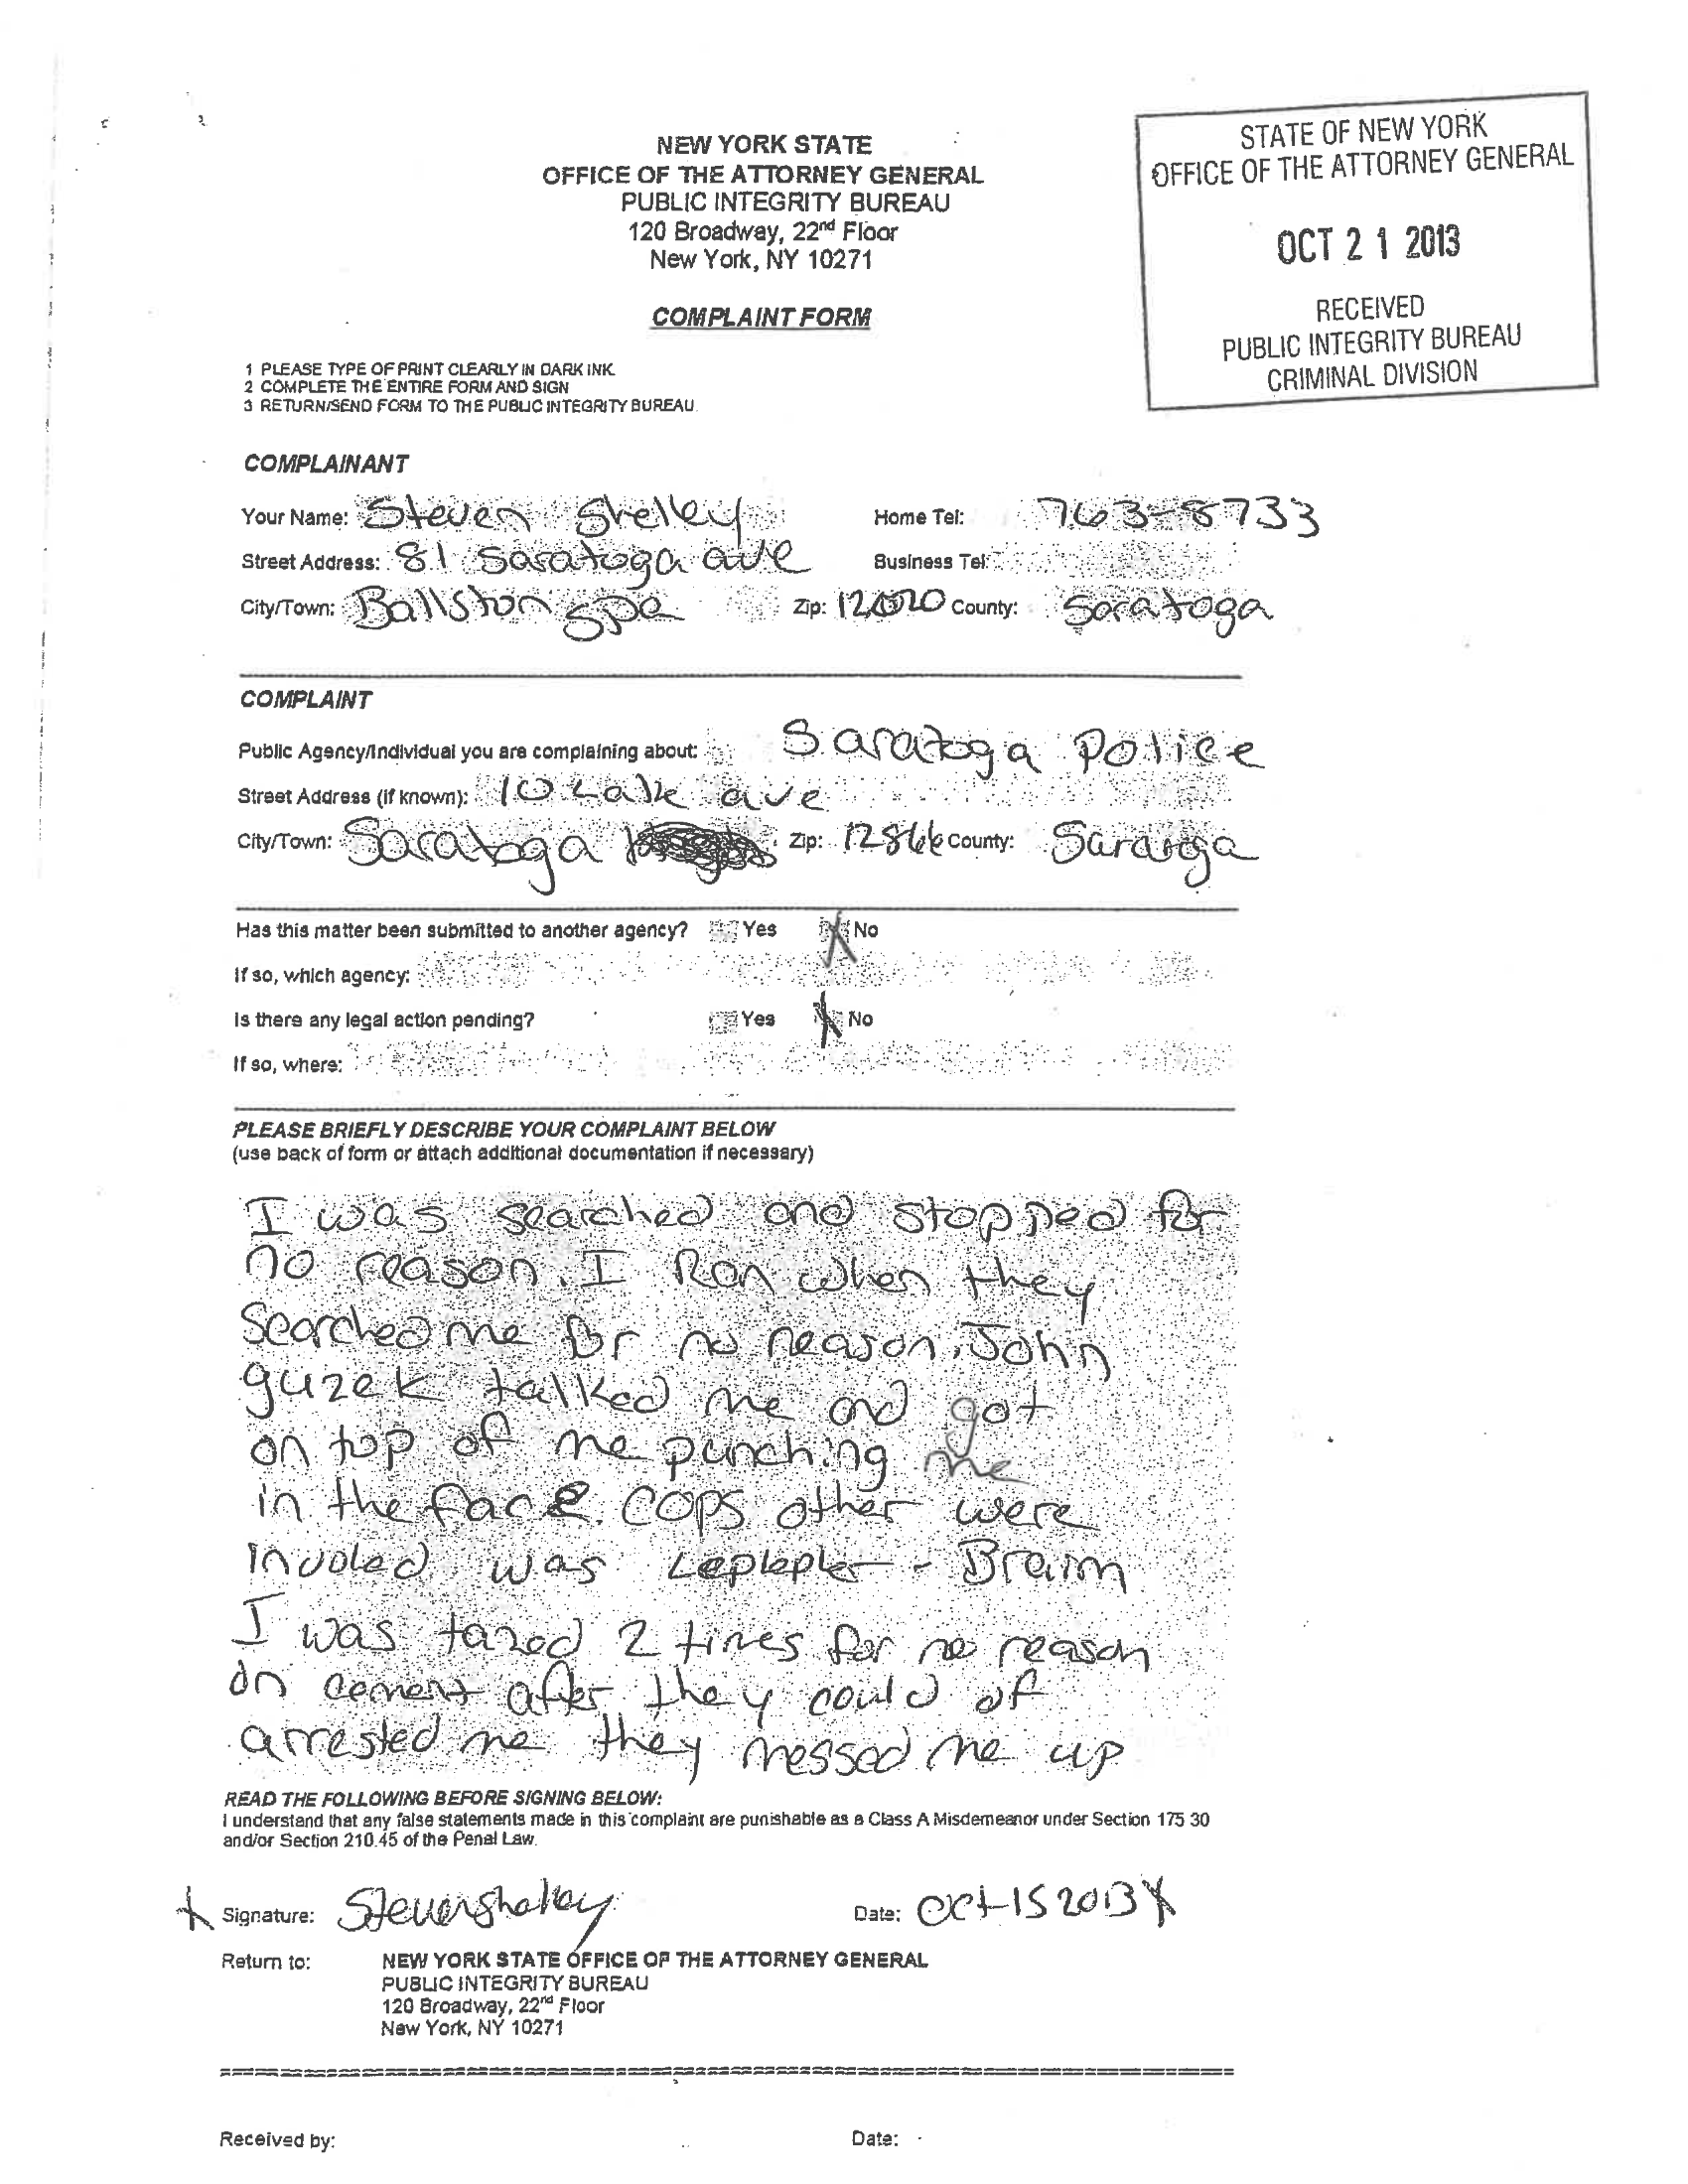 NEW YORK STATE
OFFICE OF THE ATTORNEY GENERAL
PUBLIC INTEGRITY BUREAU
120 Broadway, 22nd Floor
New York, NY 10271
COMPLAINT FORM
STATE OF NEW YORK
OFFICE OF THE ATTORNEY GENERAL
OCT 21 2013
RECEIVED
PUBLIC INTEGRITY BUREAU
CRIMINAL DIVISION
1 PLEASE TYPE OF PRINT CLEARLY IN DARK INK.
2 COMPLETE THE ENTIRE FORM AND SIGN
3 RETURN/SEND FORM TO THE PUBLIC INTEGRITY BUREAU.
COMPLAINANT
Your Name: Steven Shelley Home Tel: 763-8733
Street Address: 81 Saratoga ave Business Tel:
City/Town: Ballston spa Zip: 12020 County: Saratoga
COMPLAINT
Public Agency/Individual you are complaining about: Saratoga Police
Street Address (if known): 10 Lake ave
City/Town: Saratoga Zip: 12866 County: Saratoga
Has this matter been submitted to another agency? Yes X No
If so, which agency:
Is there any legal action pending? Yes X No
If so, where:
PLEASE BRIEFLY DESCRIBE YOUR COMPLAINT BELOW
(use back of form or attach additional documentation if necessary)
I was searched and stopped for
no reason. I Ran when they
Searched me for no reason. John
guzek talked me and got
on top of me punching me
in the face. COPS other were
involed was - 
I was tazed 2 times for no reason
on cement after they could of
arrested me they messed me up
READ THE FOLLOWING BEFORE SIGNING BELOW:
I understand that any false statements made in this complaint are punishable as a Class A Misdemeanor under Section 175 30
and/or Section 210.45 of the Penal Law.
X Signature: Steven Shelley Date: Oct-15 2013 X
Return to: NEW YORK STATE OFFICE OF THE ATTORNEY GENERAL
PUBLIC INTEGRITY BUREAU
120 Broadway, 22nd Floor
New York, NY 10271
Received by: Date: